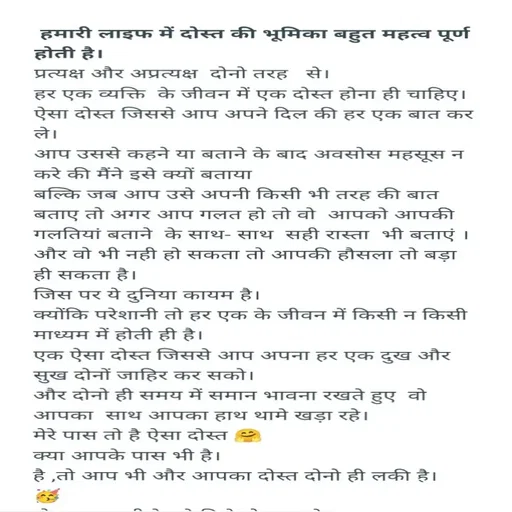 हमारी लाइफ में दोस्त की भूमिका बहुत महत्व पूर्ण
होती है।
प्रत्यक्ष और अप्रत्यक्ष दोनो तरह से।
हर एक व्यक्ति के जीवन में एक दोस्त होना ही चाहिए।
ऐसा दोस्त जिससे आप अपने दिल की हर एक बात कर
ले।
आप उससे कहने या बताने के बाद अवसोस महसूस न
करे की मैंने इसे क्यों बताया
बल्कि जब आप उसे अपनी किसी भी तरह की बात
बताए तो अगर आप गलत हो तो वो आपको आपकी
गलतियां बताने के साथ- साथ सही रास्ता भी बताएं ।
और वो भी नही हो सकता तो आपकी हौसला तो बड़ा
ही सकता है।
जिस पर ये दुनिया कायम है।
क्योंकि परेशानी तो हर एक के जीवन में किसी न किसी
माध्यम में होती ही है।
एक ऐसा दोस्त जिससे आप अपना हर एक दुख और
सुख दोनों जाहिर कर सको।
और दोनो ही समय में समान भावना रखते हुए वो
आपका साथ आपका हाथ थामे खड़ा रहे।
मेरे पास तो है ऐसा दोस्त 🤗
क्या आपके पास भी है।
है ,तो आप भी और आपका दोस्त दोनो ही लकी है।
🥳